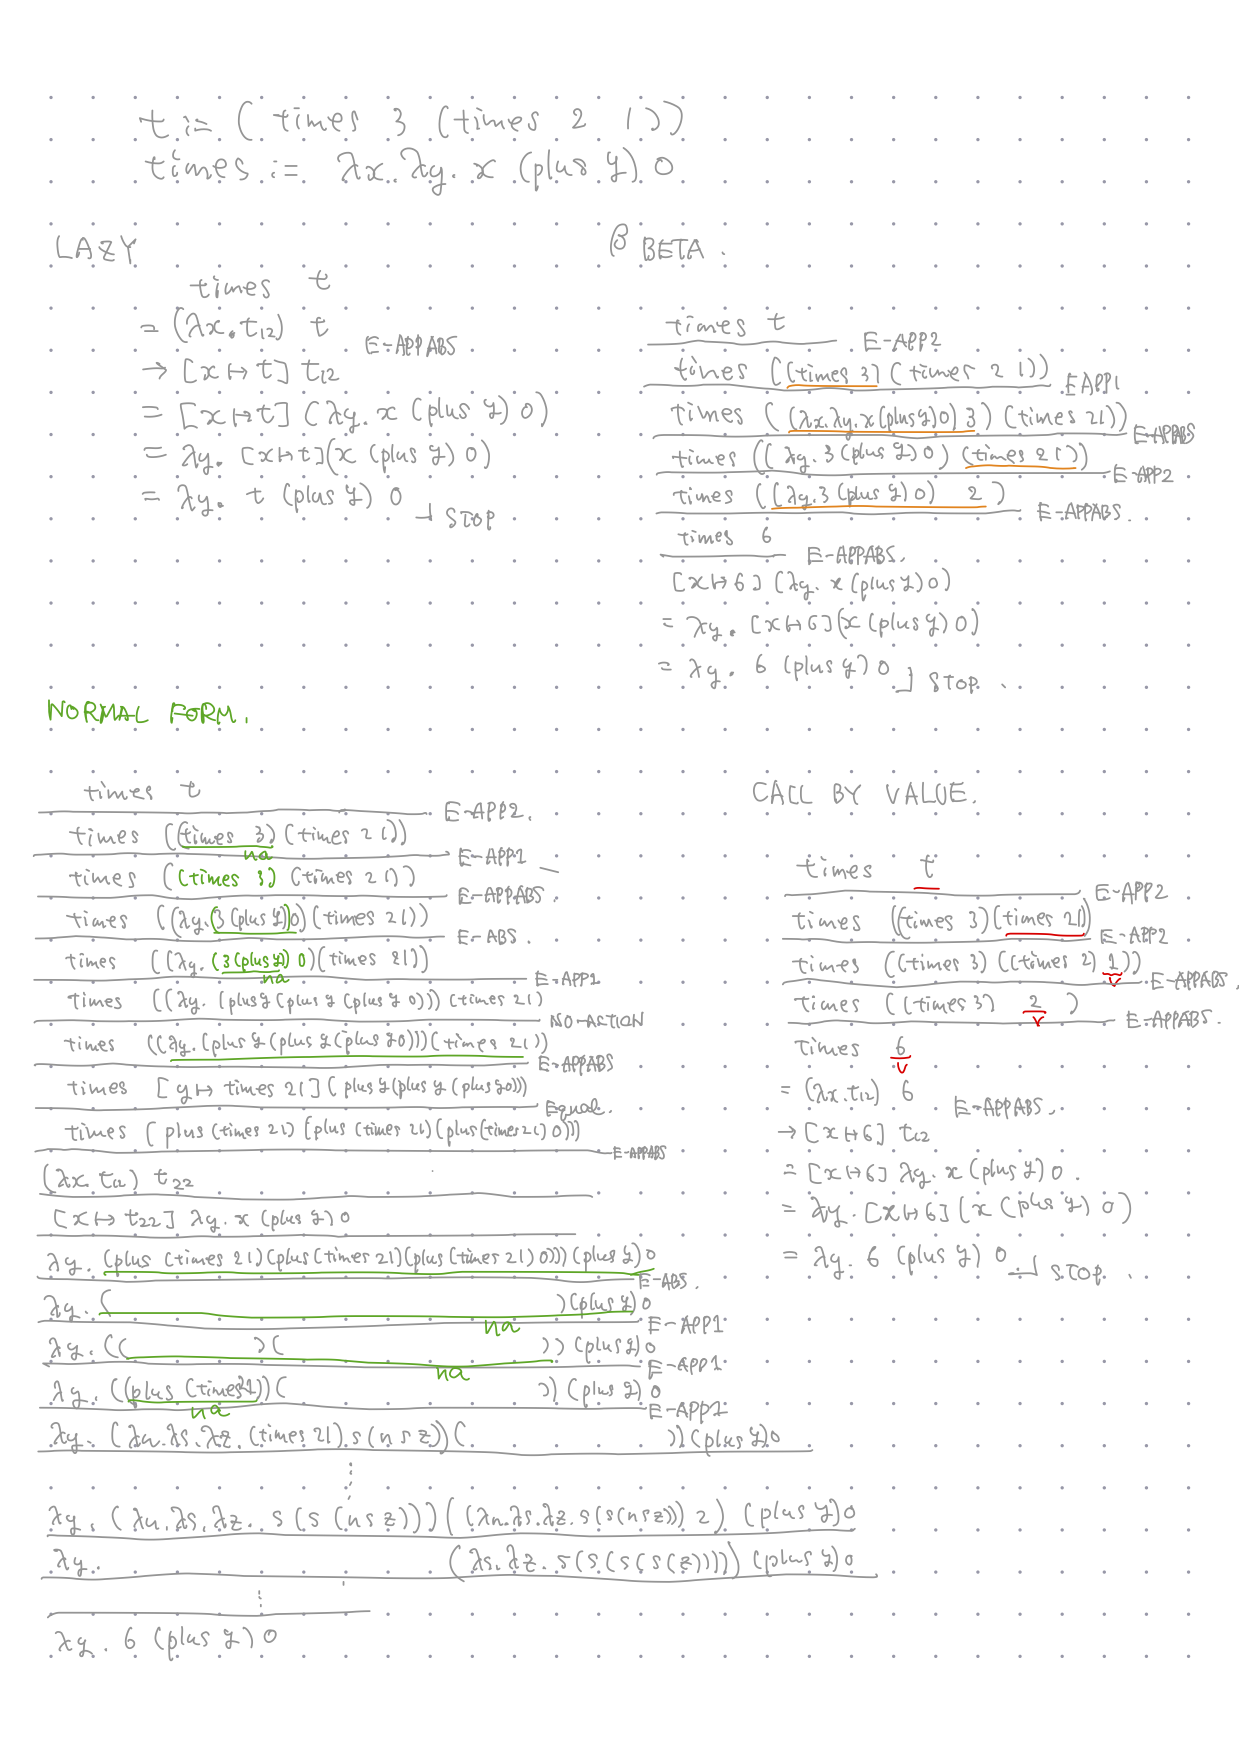 t := (times 3 (times 2 1))
times := λx.λy. x (plus y) 0
LAZY
times t
= (λx.t12) t
E-APPABS
→ [x ↦ t] t12
= [x ↦ t] (λy. x (plus y) 0)
= λy. [x ↦ t](x (plus y) 0)
= λy. t (plus y) 0
STOP
β BETA.
times t
E-APP2
times ((times 3) (times 2 1))
E-APP1
times ((λx.λy.x(plus y)0) 3) (times 2 1))
E-APPABS
times ((λy.3 (plus y) 0) (times 2 1))
E-APP2
times ((λy.3 (plus y) 0) 2)
E-APPABS.
times 6
E-APPABS.
[x ↦ 6] (λy. x (plus y) 0)
= λy. [x ↦ 6](x (plus y) 0)
= λy. 6 (plus y) 0
STOP.
NORMAL FORM.
times t
E-APP2.
times ((times 3) (times 2 1))
na
E-APP1
times ((times 3) (times 2 1))
E-APPABS
times ((λy.(3 (plus y)) 0) (times 2 1))
E-ABS.
times ((λy. (3 (plus y)) 0) (times 2 1))
na
E-APP1
times ((λy. (plus y (plus y (plus y 0))) (times 2 1)
NO-ACTION
times ((λy. (plus y (plus y (plus y 0))) (times 2 1))
E-APPABS
times [y ↦ times 2 1] (plus y (plus y (plus y 0)))
Equal.
times (plus (times 2 1) (plus (times 2 1) (plus (times 2 1) 0)))
E-APPABS
(λx. t12) t22
[x ↦ t22] λy. x (plus y) 0
λy. (plus (times 2 1) (plus (times 2 1) (plus (times 2 1) 0))) (plus y) 0
E-ABS.
λy. ( ) (plus y) 0
na
E-APP1
λy. (( ) ( )) (plus y) 0
na
E-APP1
λy. ((plus (times 2 1)) ( )) (plus y) 0
na
E-APP1
λy. (λn.λs.λz. (times 2 1) s (n s z)) ( )) (plus y) 0
λy. (λn.λs.λz. s (s (n s z))) ((λn.λs.λz. s (s (n s z))) 2) (plus y) 0
λy. (λs.λz. s (s (s (s (z))))) (plus y) 0
λy. 6 (plus y) 0
CALL BY VALUE.
times t
E-APP2
times ((times 3) (times 2 1))
E-APP2
times ((times 3) ((times 2) 1))
v
E-APPABS.
times ((times 3) 2)
v
E-APPABS.
times 6
v
= (λx.t12) 6
E-APPABS.
→ [x ↦ 6] t12
= [x ↦ 6] λy. x (plus y) 0.
= λy. [x ↦ 6] (x (plus y) 0)
= λy. 6 (plus y) 0
STOP.